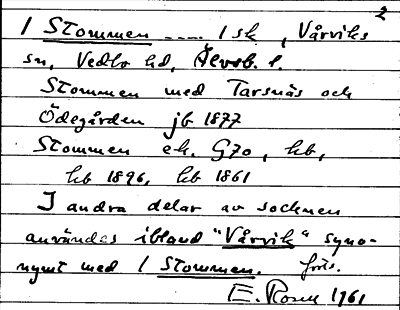 2
1 Stommen ..... 1 sk, Vårviks
sn, Vedbo hd, Älvsb. l.
Stommen med Tarsnäs och
Ödegården jb 1877
Stommen ek. G70, hb,
kb 1896, kb 1861
I andra delar av socknen
användes ibland "Vårvik" syno-
nymt med 1 Stommen. forts.
E. Rosen 1961